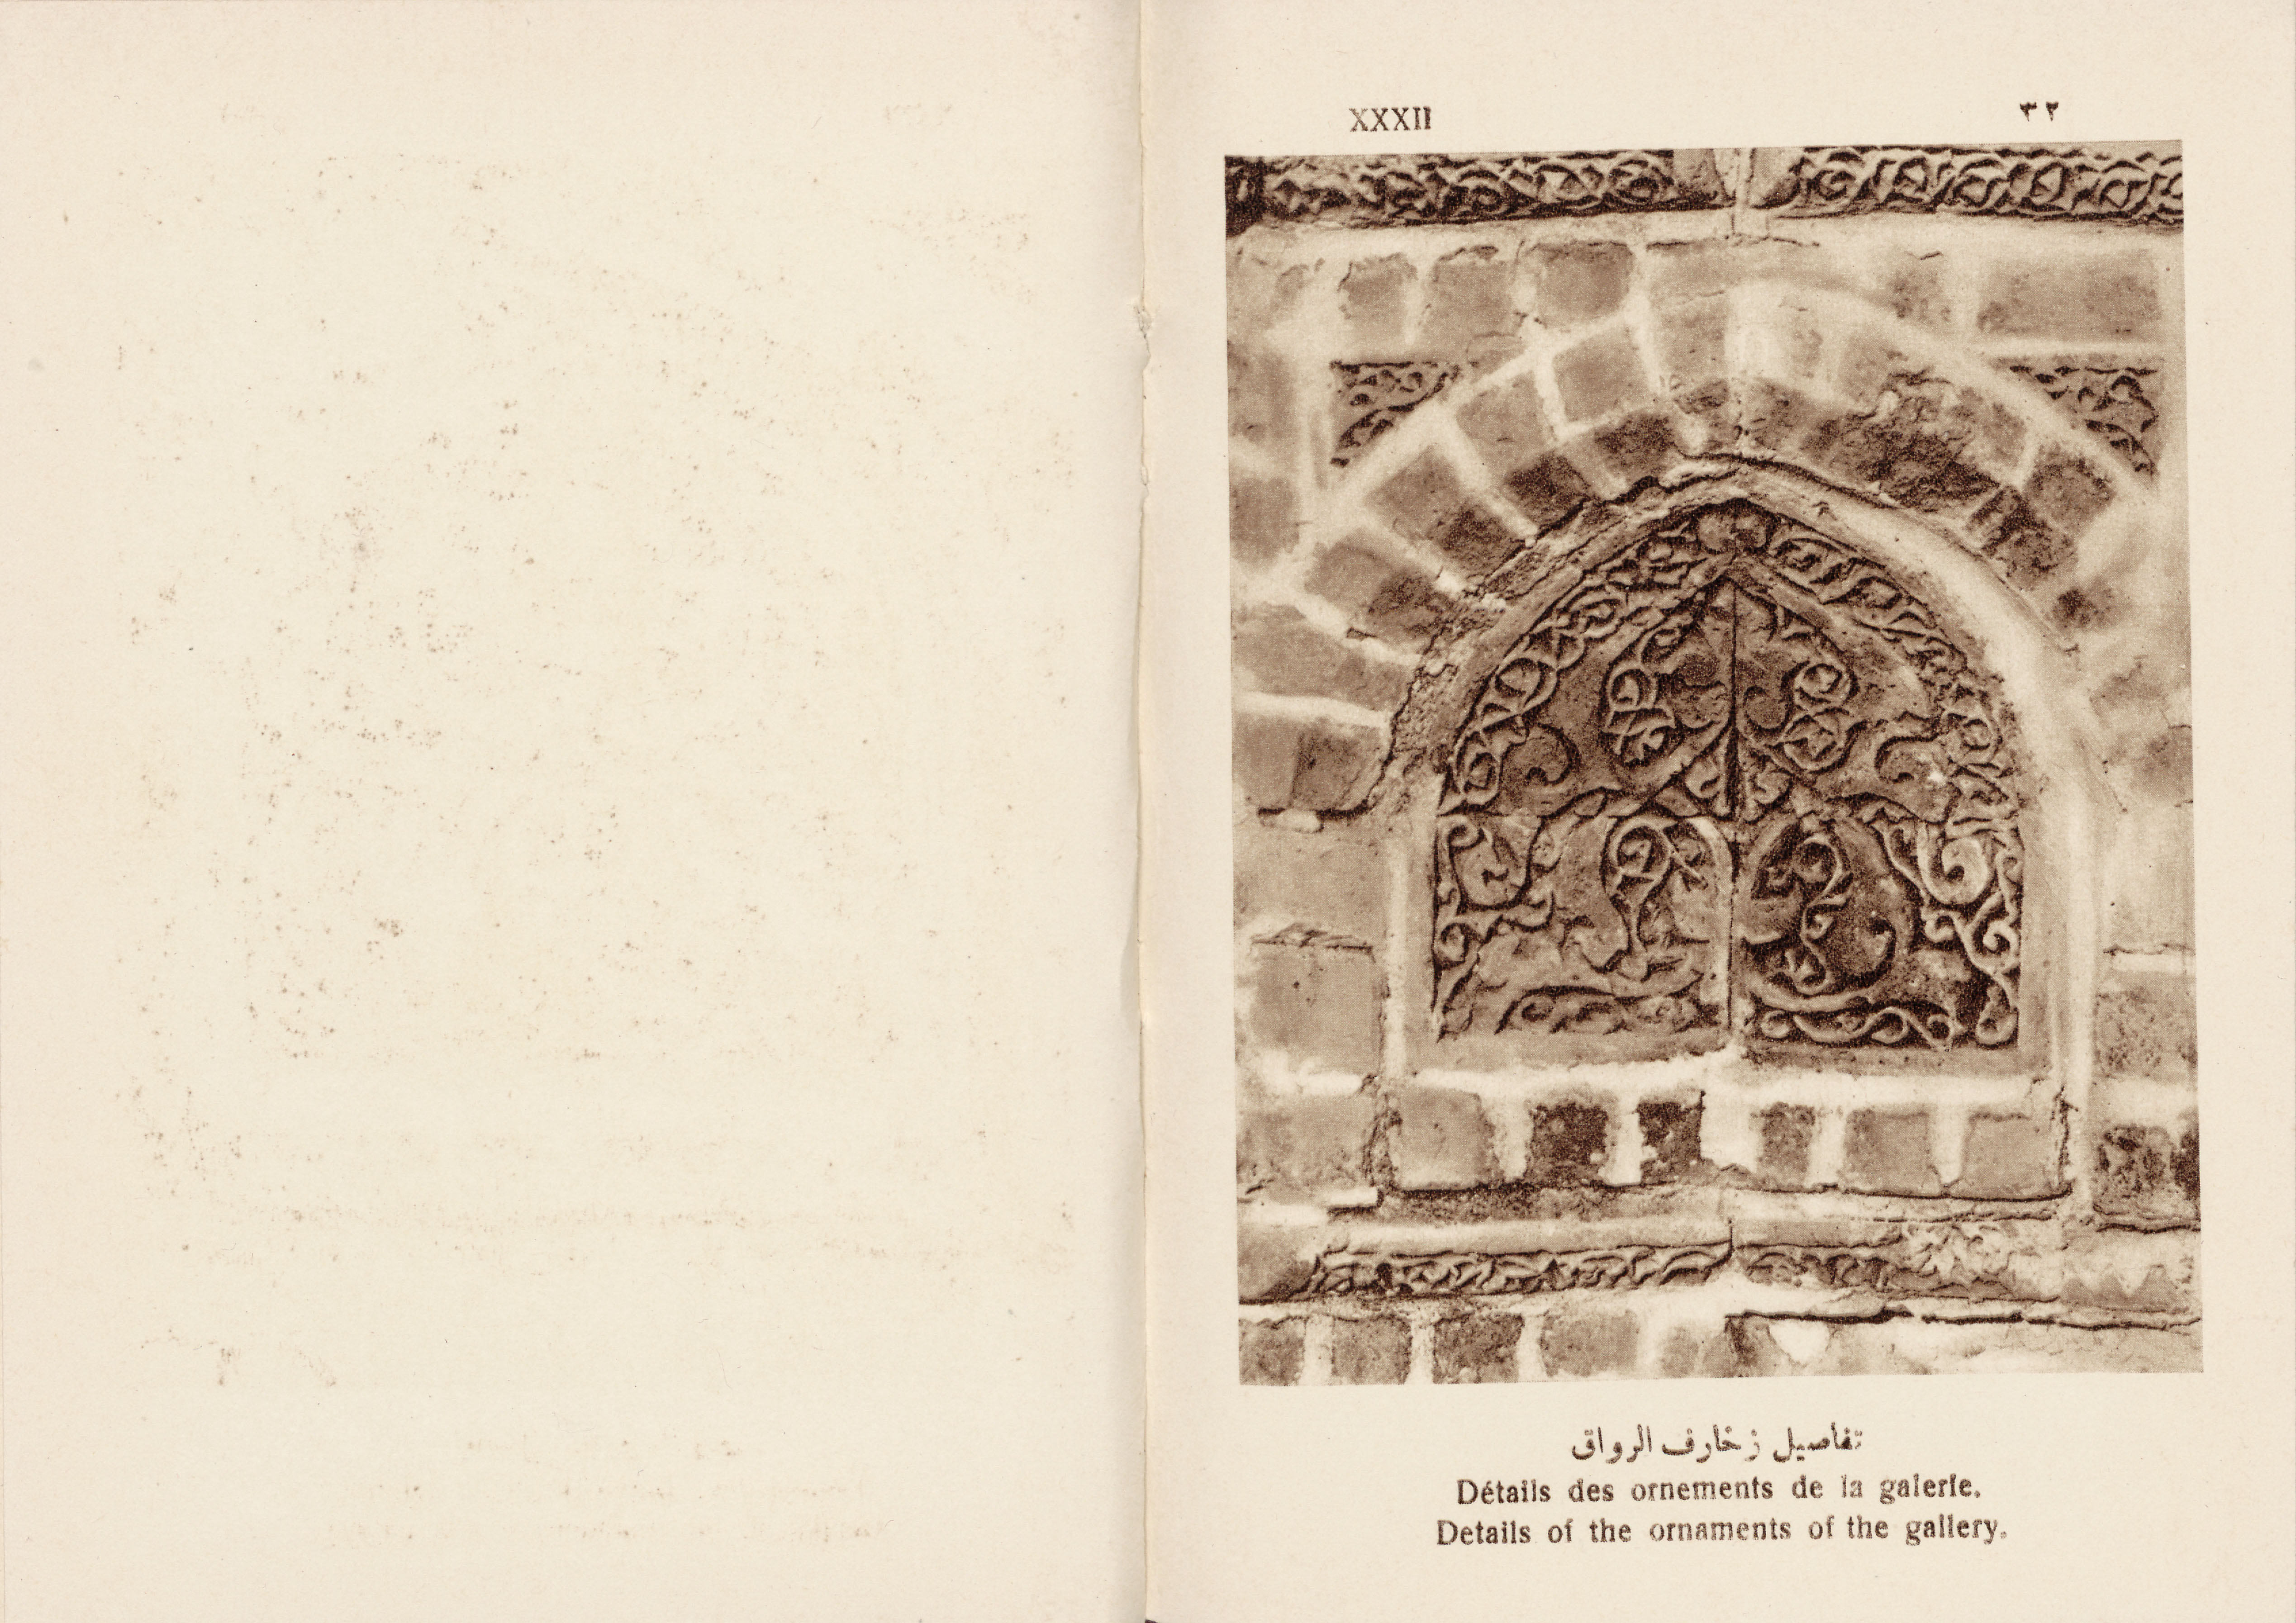 XXXII
٣٢
تفاصيل زخارف الرواق
Détails des ornements de la galerie.
Details of the ornaments of the gallery.